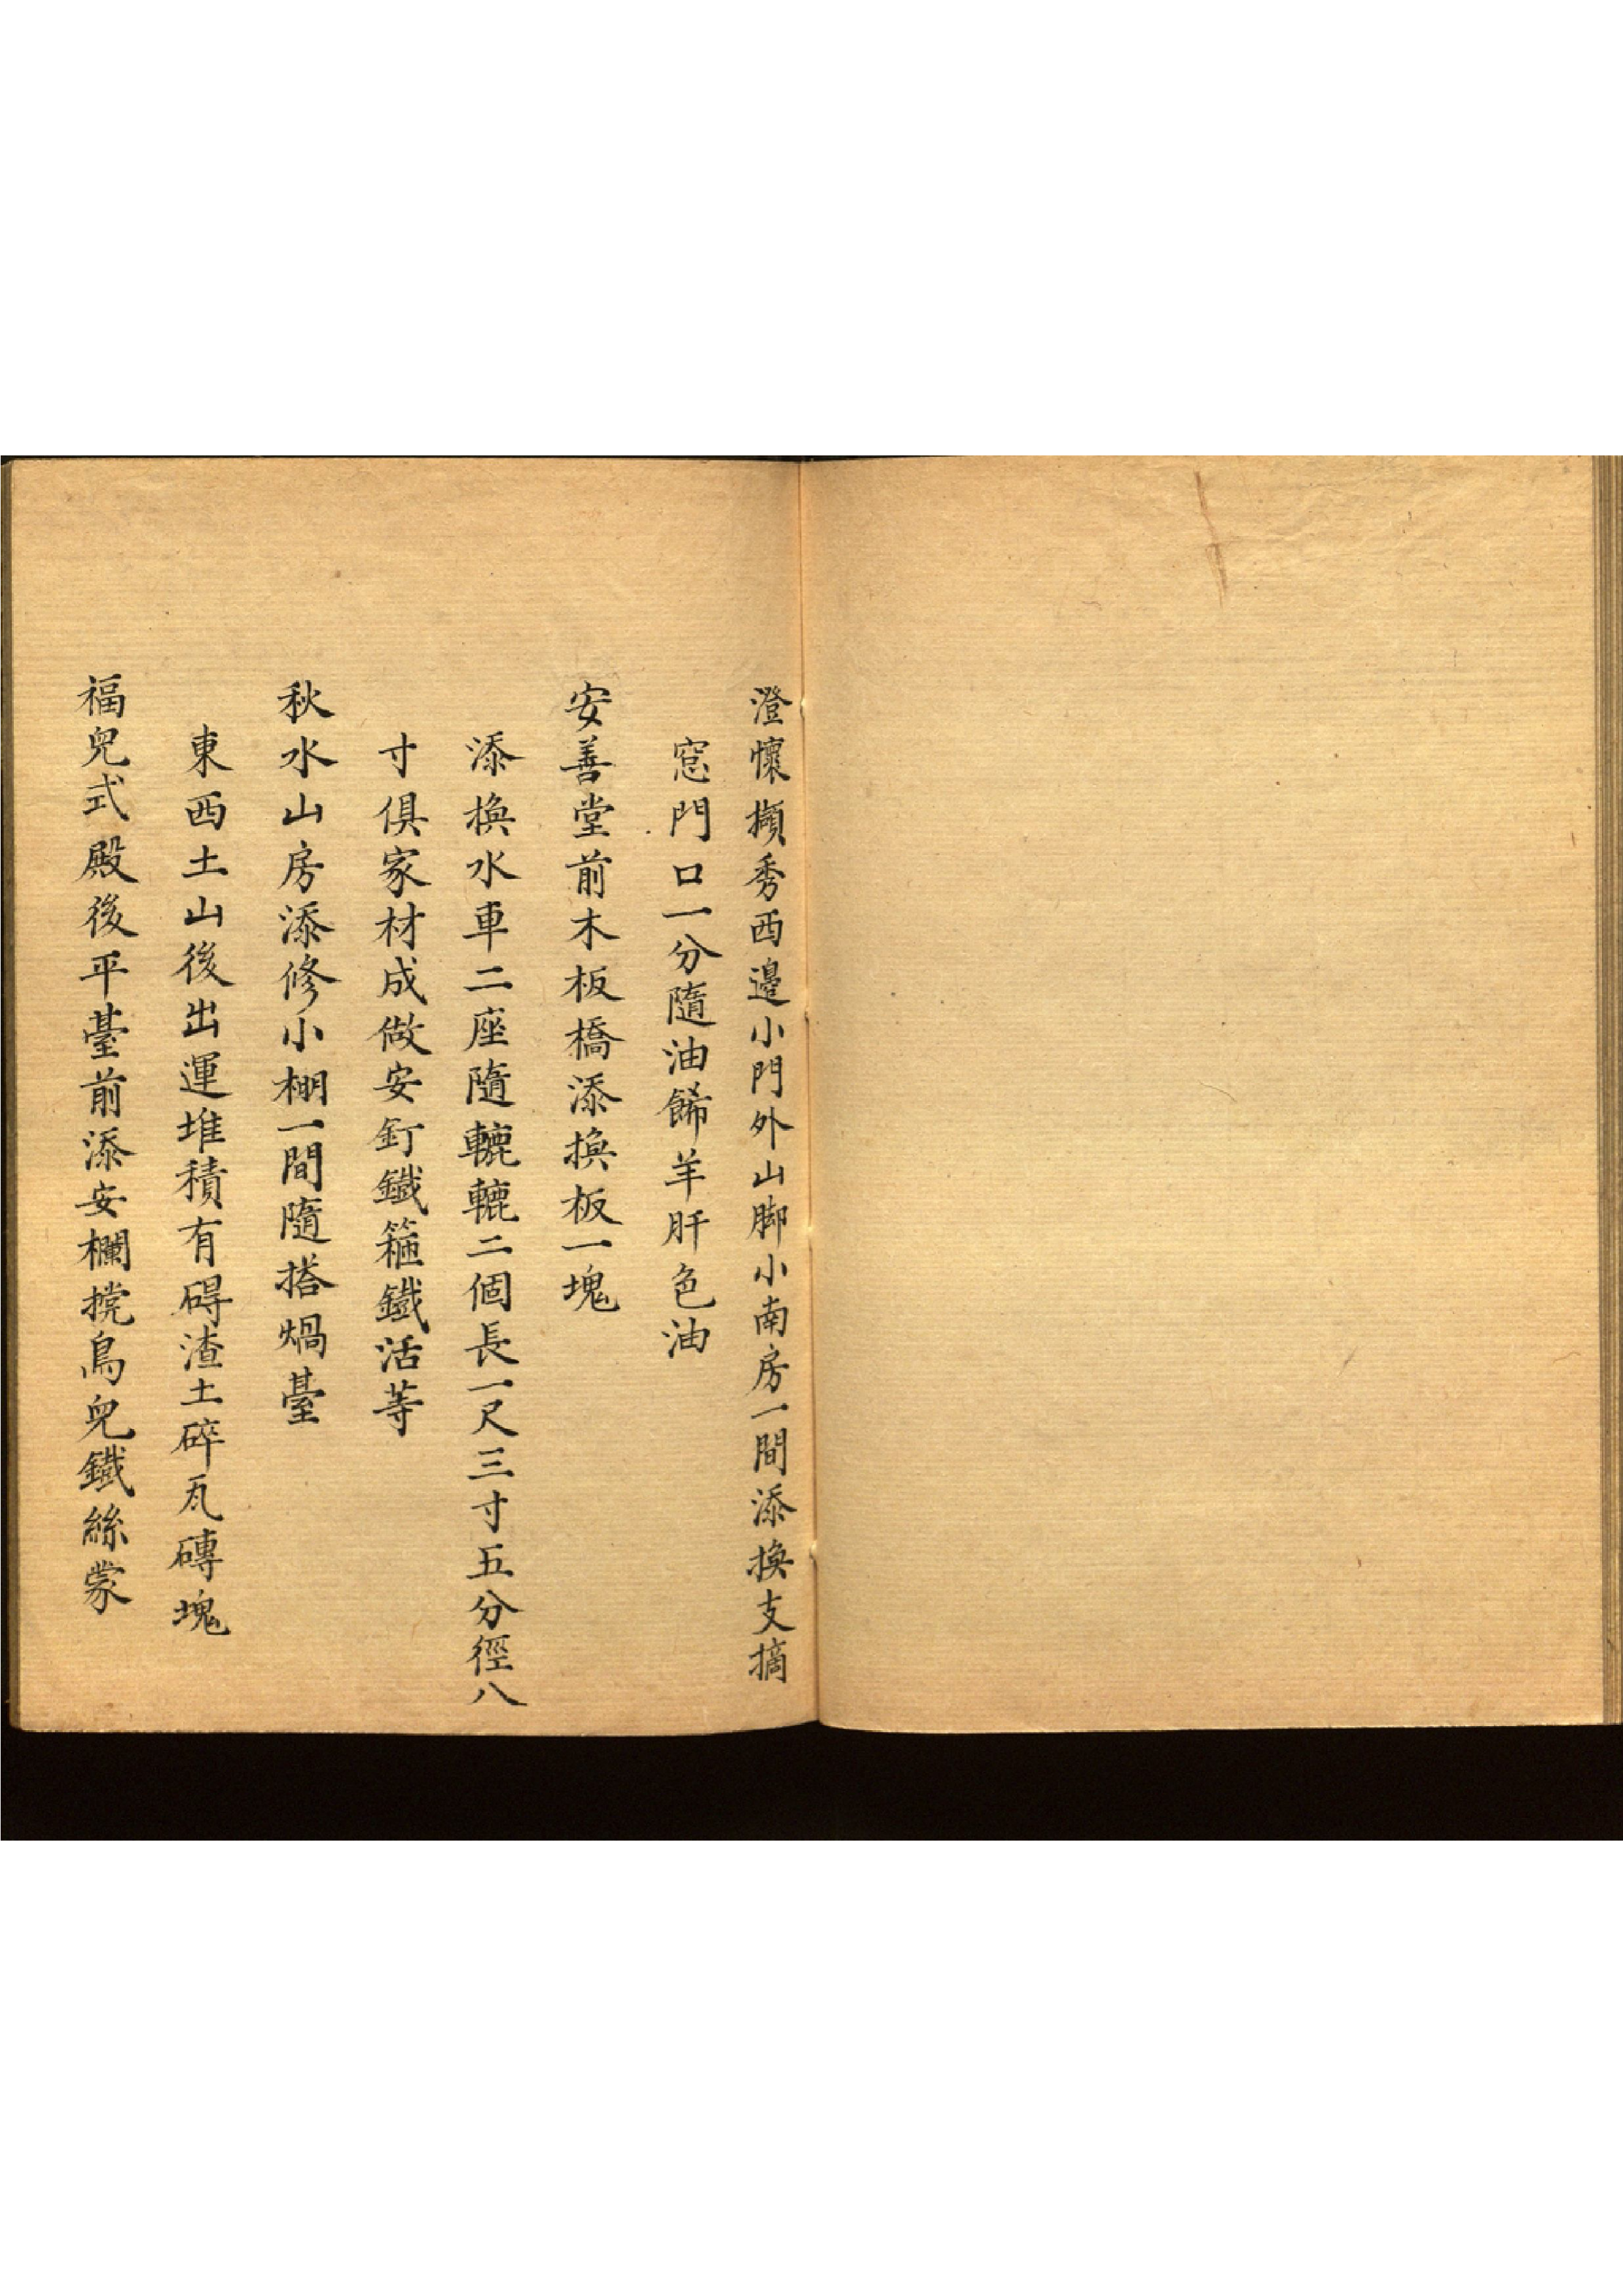 澄懷擷秀西邊小門外山脚小南房一間添換支摘
窓門口一分隨油餙羊肝色油
安善堂前木板橋添換板一塊
添換水車二座隨轆轆二個長一尺三寸五分徑八
寸俱家材成做安釘鐵箍鐵活等
秋水山房添修小棚一間隨搭煱臺
東西土山後出運堆積有碍渣土碎瓦磚塊
福兒式殿後平臺前添安欄撓鳥兒鐵絲蒙